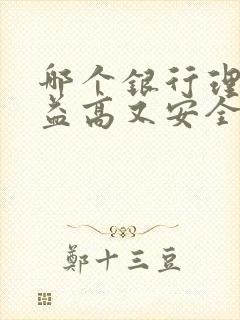 哪个银行理
益高又安全
鄭十三豆